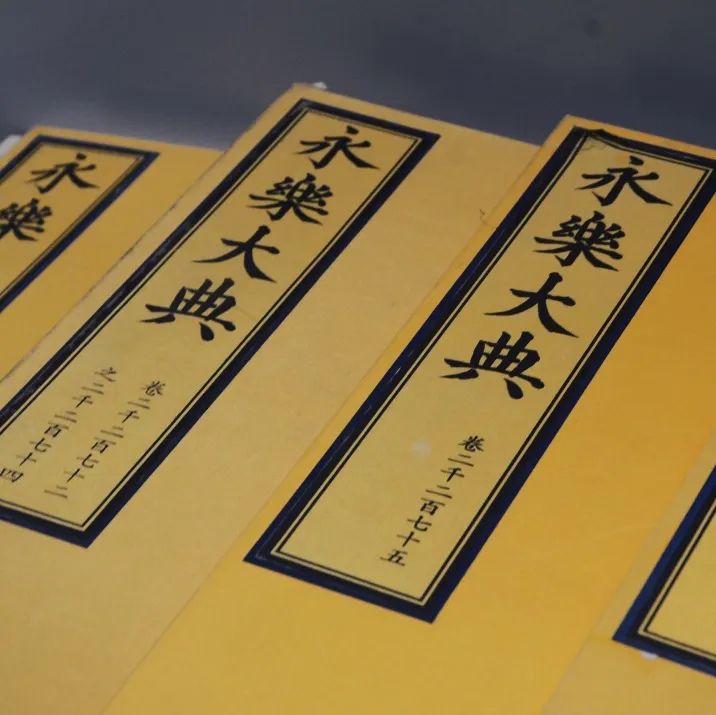 永樂
永樂大典
卷二千二百七十二
之二千二百七十四
永樂大典
卷二千二百七十五